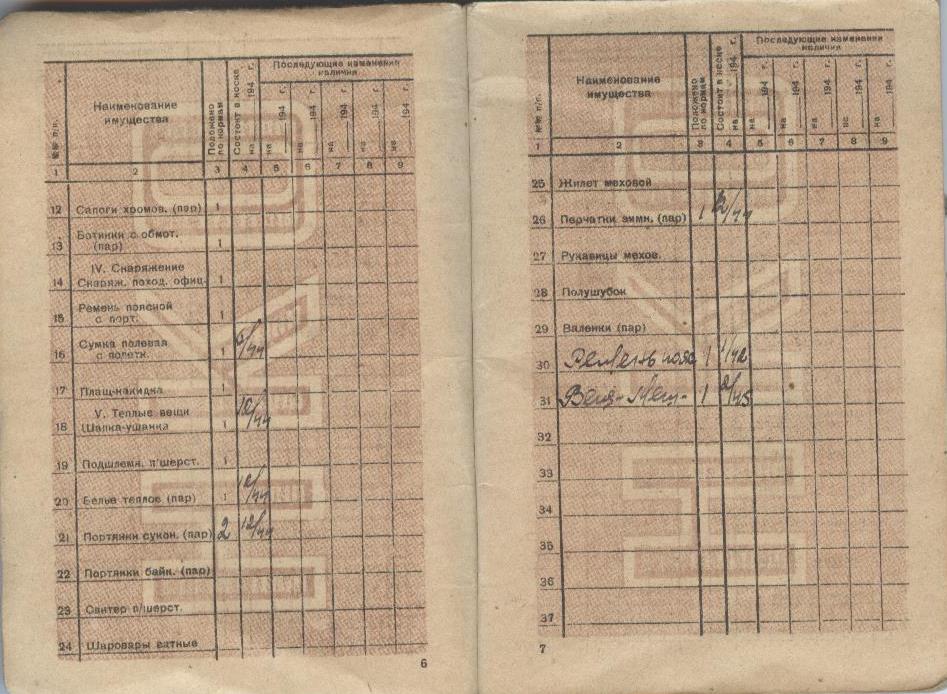 №№ п/п.
Наименование
имущества
Положено
по нормам
Состоит в носке
на 194 г.
Последующие изменения
наличия
на 194 г.
на 194 г.
на 194 г.
на 194 г.
на 194 г.
1 2 3 4 5 6 7 8 9
12 Сапоги хромов. (пар) 1
Ботинки с обмот.
13 (пар) 1
IV. Снаряжение
14 Снаряж. поход. офиц. 1
Ремень поясной
15 с порт. 1
Сумка полевая
16 с полетк. 1 5/44
17 Плащ-накидка 1
V. Теплые вещи
18 Шапка-ушанка 1 10/44
19 Подшлемн. п/шерст. 1
20 Белье теплое (пар) 1 12/44
21 Портянки сукон. (пар) 2 12/44
22 Портянки байк. (пар)
23 Свитер п/шерст.
24 Шаровары ватные
6
№№ п/п.
Наименование
имущества
Положено
по нормам
Состоит в носке
на 194 г.
Последующие изменения
наличия
на 194 г.
на 194 г.
на 194 г.
на 194 г.
на 194 г.
1 2 3 4 5 6 7 8 9
25 Жилет меховой
26 Перчатки зимн. (пар) 1 12/44
27 Рукавицы мехов.
28 Полушубок
29 Валенки (пар)
30 Ремень пояс 1 1/42
31 Вещ-Меш- 1 2/45
32
33
34
35
36
37
7